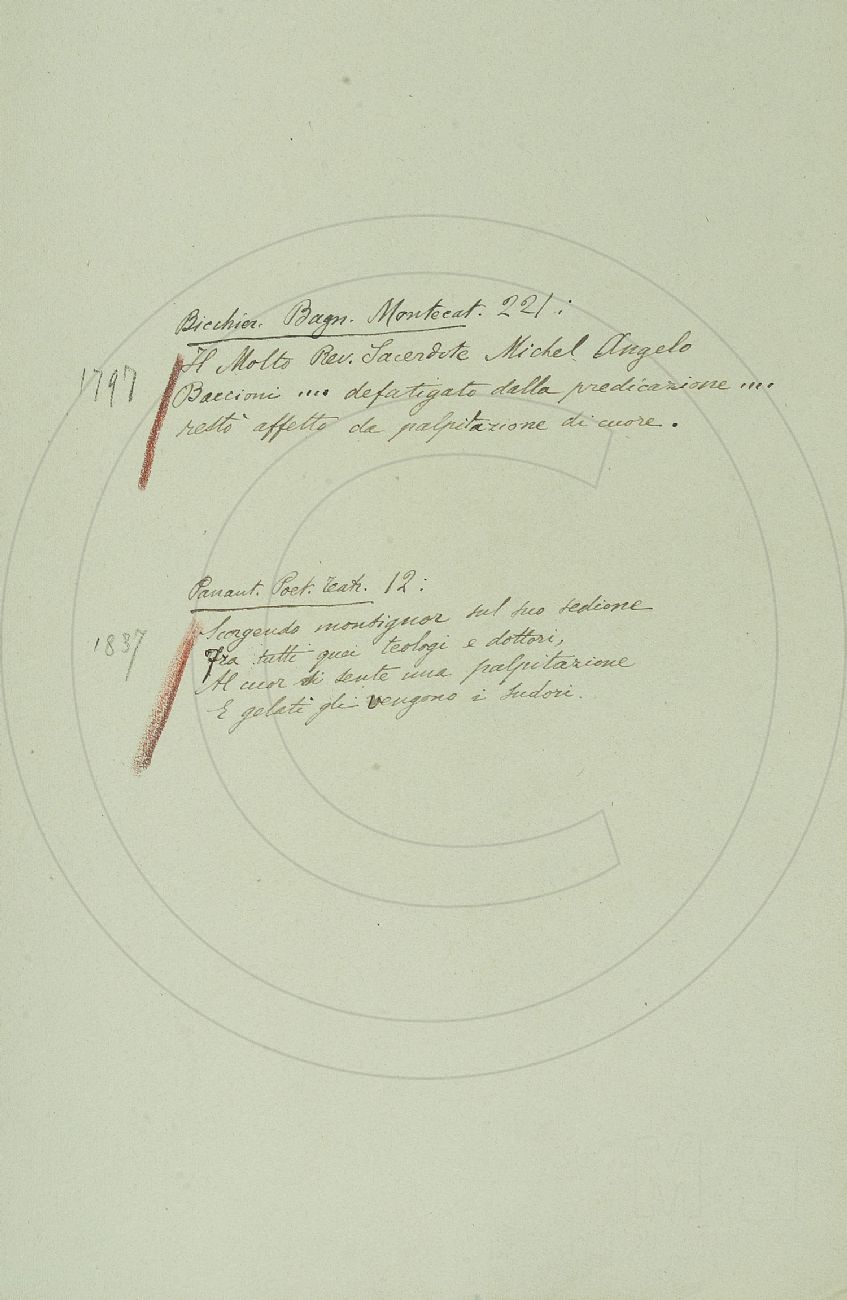 Bicchier. Bagn. Montecat. 221:
1797 Il Molto Rev. Sacerdote Michel Angelo
Baccioni .... defatigato dalla predicazione ....
restò affetto da palpitazione di cuore.
Panant. Poet. Teatr. 12:
1837 Scorgendo monsignor sul suo sedione
Fra tutti quei teologi e dottori,
Al cuor si sente una palpitazione
E gelati gli vengono i sudori.